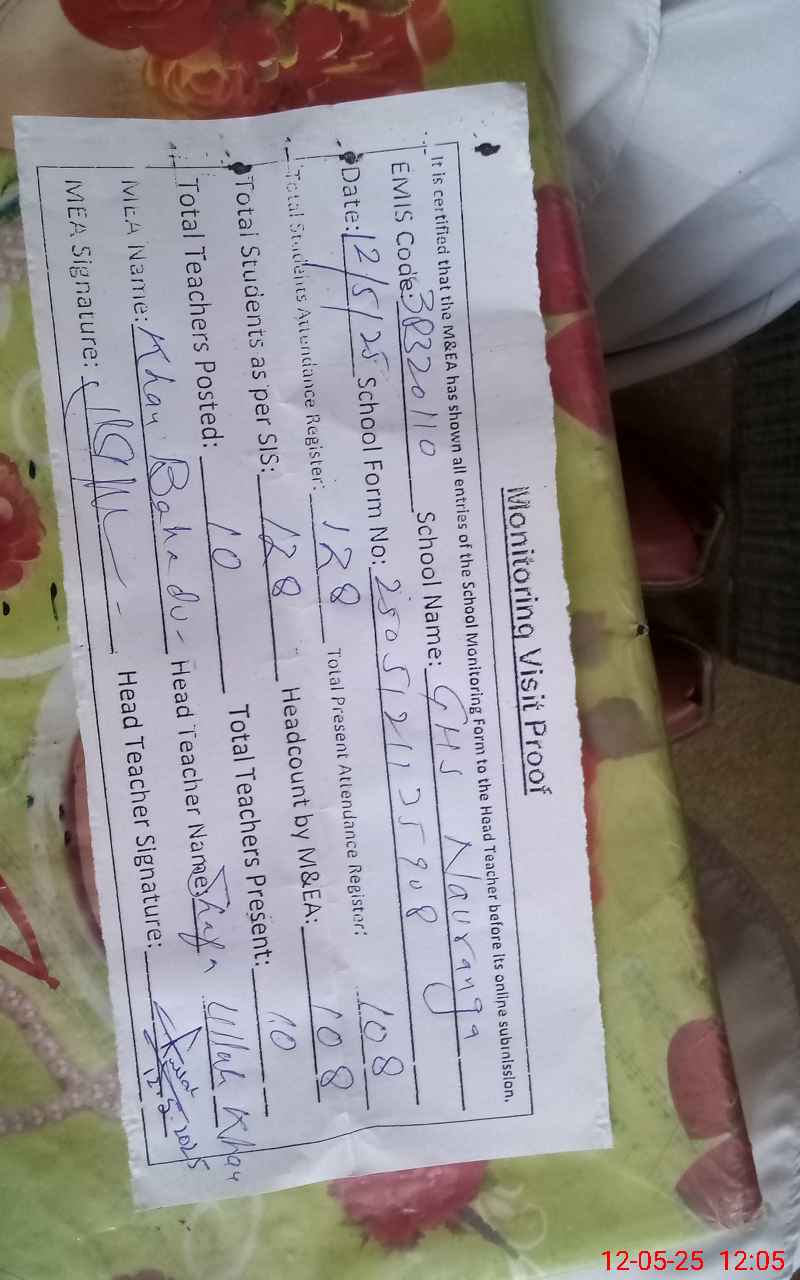 Monitoring Visit Proof
It is certified that the M&EA has shown all entries of the School Monitoring Form to the Head Teacher before its online submission.
EMIS Code: 38320110 School Name: GHS Nauranga
Date: 12/5/25 School Form No: 2505121135908
Total Students Attendance Register: 128 Total Present Attendance Register: 108
Total Students as per SIS: 128 Headcount by M&EA: 108
Total Teachers Posted: 10 Total Teachers Present: 10
MEA Name: Khan Bahadur Head Teacher Name: Shafa Ullah Khan
MEA Signature: Head Teacher Signature:
12.5.2025
12-05-25 12:05